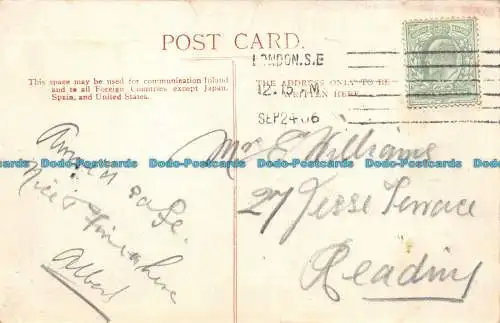 POST CARD.
This space may be used for communication Inland
and to all Foreign Countries except Japan,
Spain, and United States.
THE ADDRESS ONLY TO BE
WRITTEN HERE.
LONDON. S.E
12.15 PM
SEP 24 06
Arrived safe.
Nice & fine here
Albert
Mr E Williams
27 Jesse Terrace
Reading